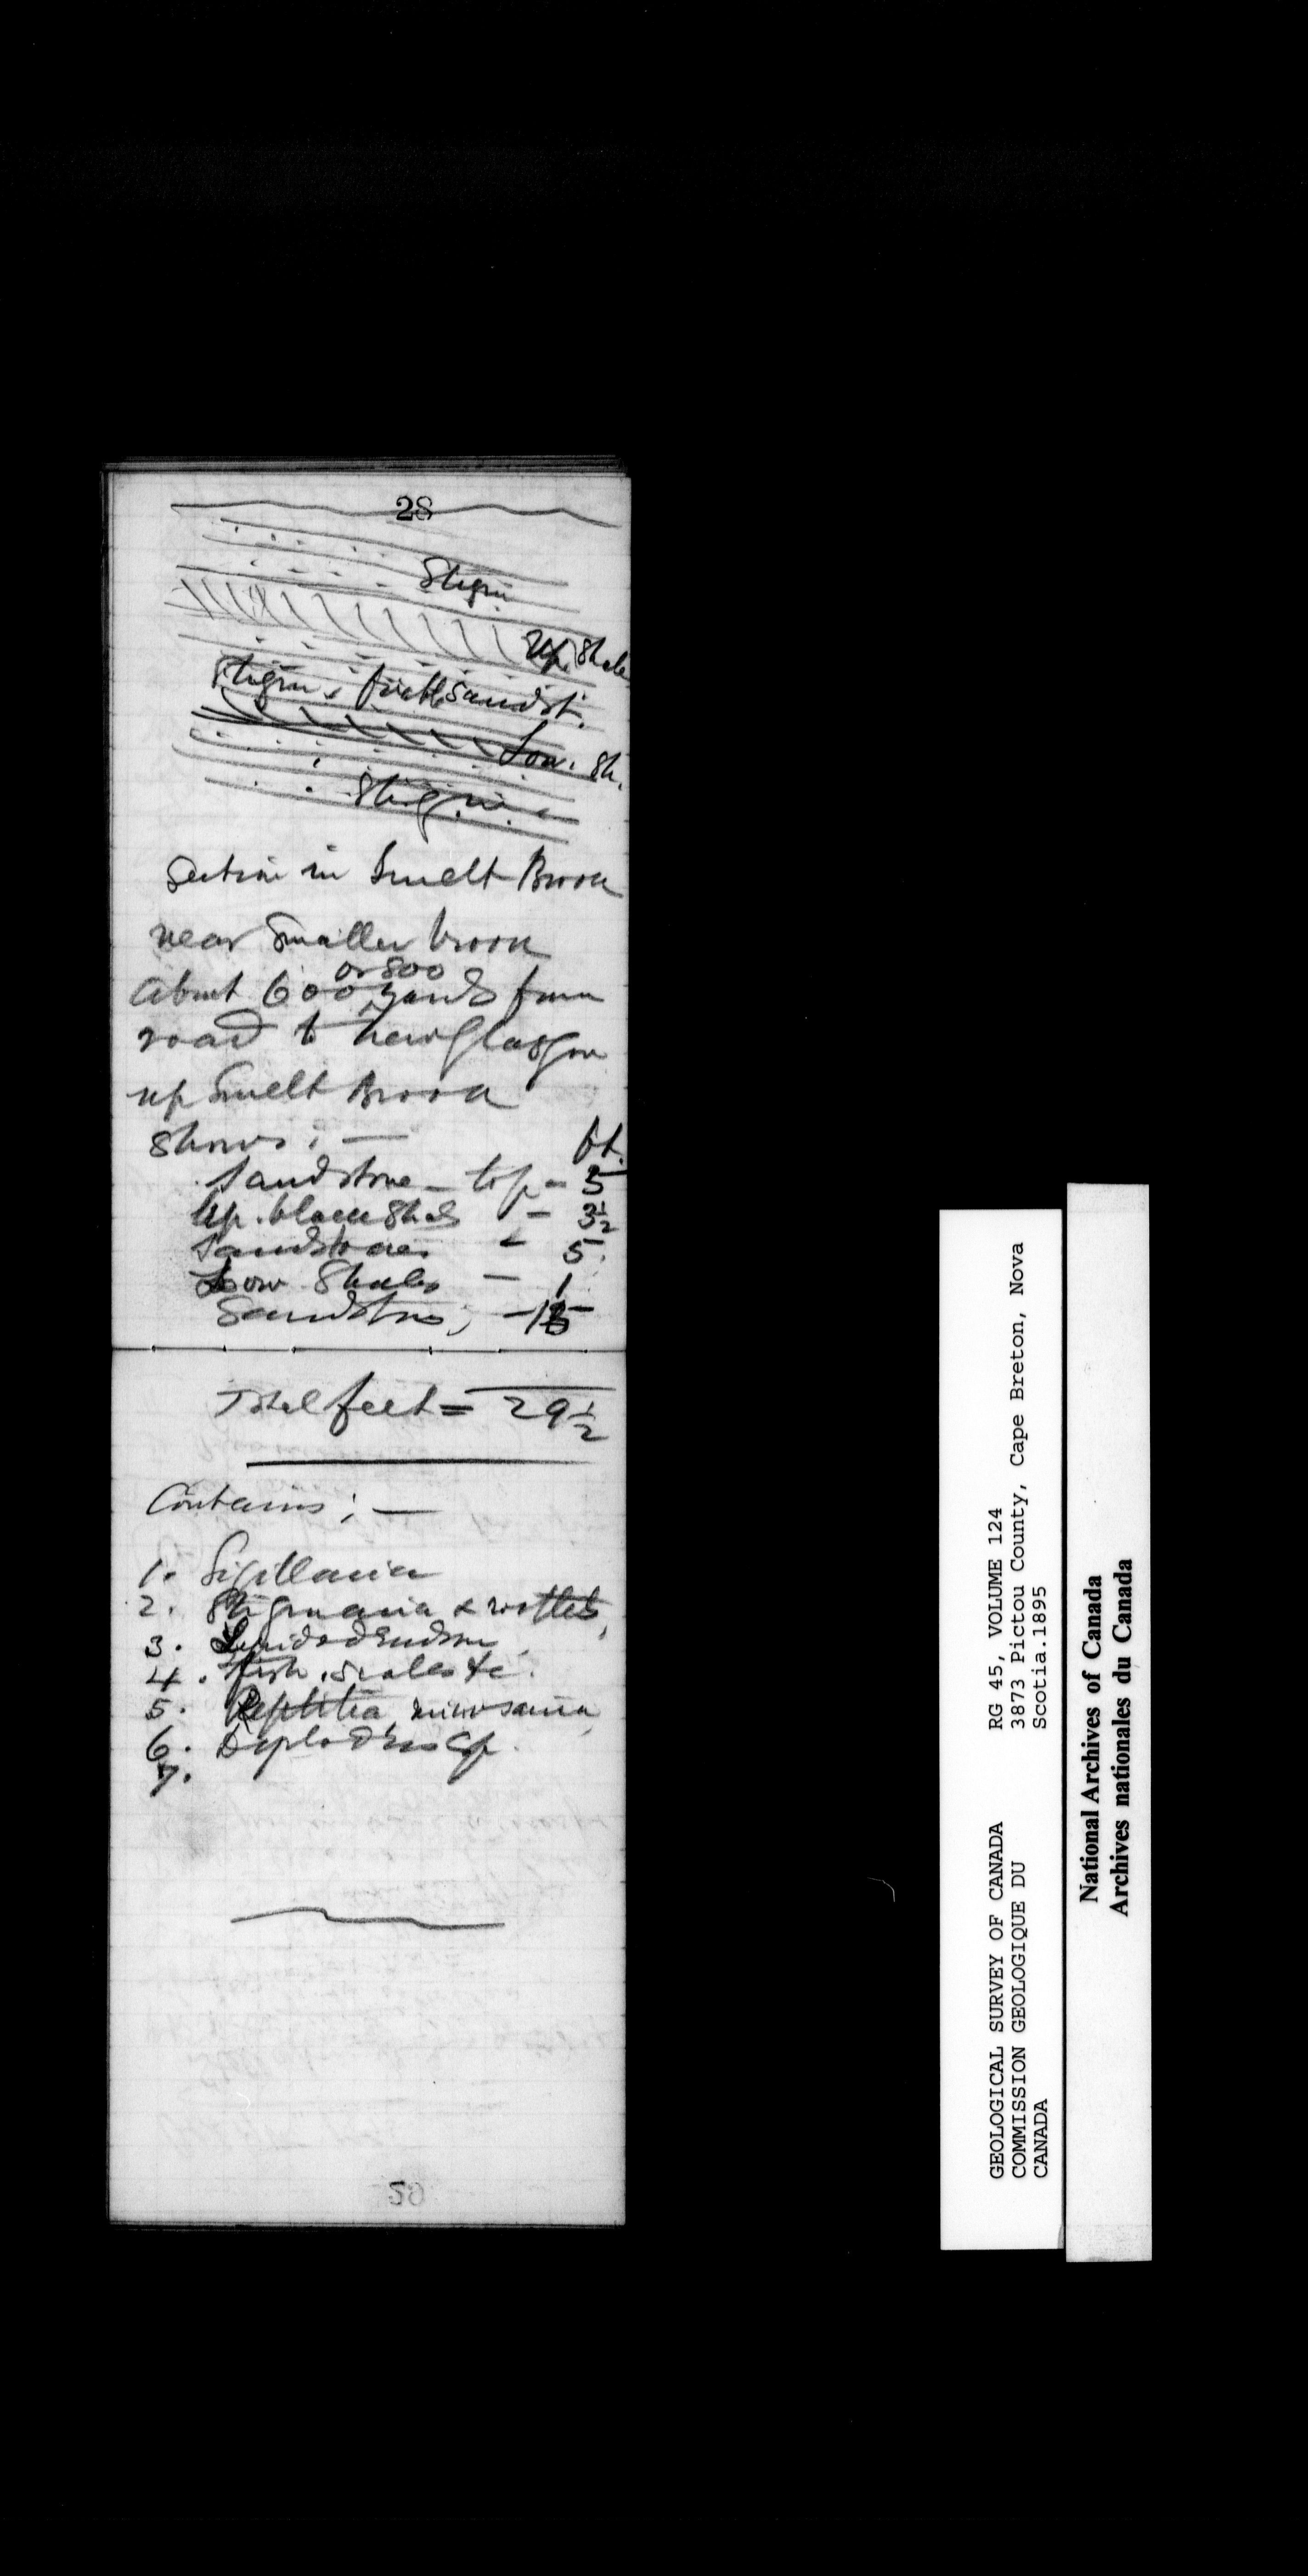 28
Stigm
Up. Shale
Stigm. sandst.
Low. Sh.
Stigm.
Section in Smelt Brook
near Smaller brook
or 800
about 600 yards from
road to New Glasgow
up Smelt Brook
shows : —
ft.
Sandstone — top — 5
Up. black Shales — 3½
Sandstones — 5.
Low Shales — 1
Sandstones, — 15
Total feet = 29½
Contains ; —
1. Sigillaria
2. Stigmaria & rootlets,
3. Lepidodendron,
4. Fish. scales &c.
5. Reptilia, microsauria,
6. Diplodus
7.
50
GEOLOGICAL SURVEY OF CANADA RG 45, VOLUME 124
COMMISSION GEOLOGIQUE DU 3873 Pictou County, Cape Breton, Nova
CANADA Scotia.1895
National Archives of Canada
Archives nationales du Canada